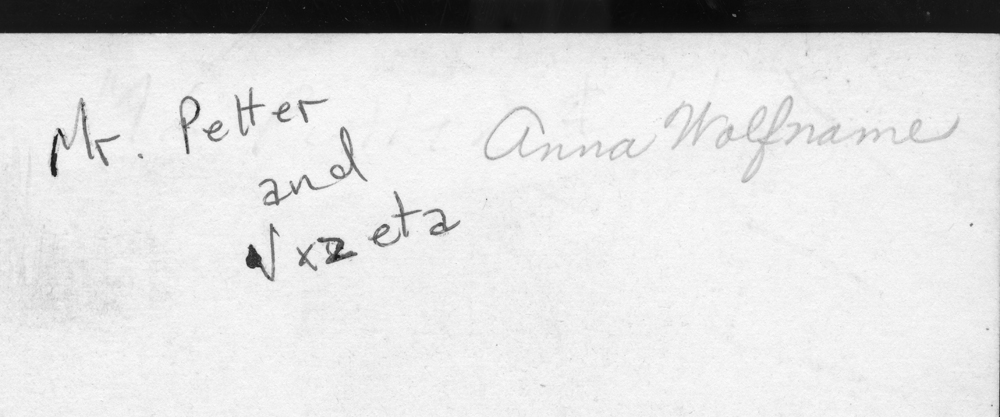 Mr. Petter
and
Anna Wolfname